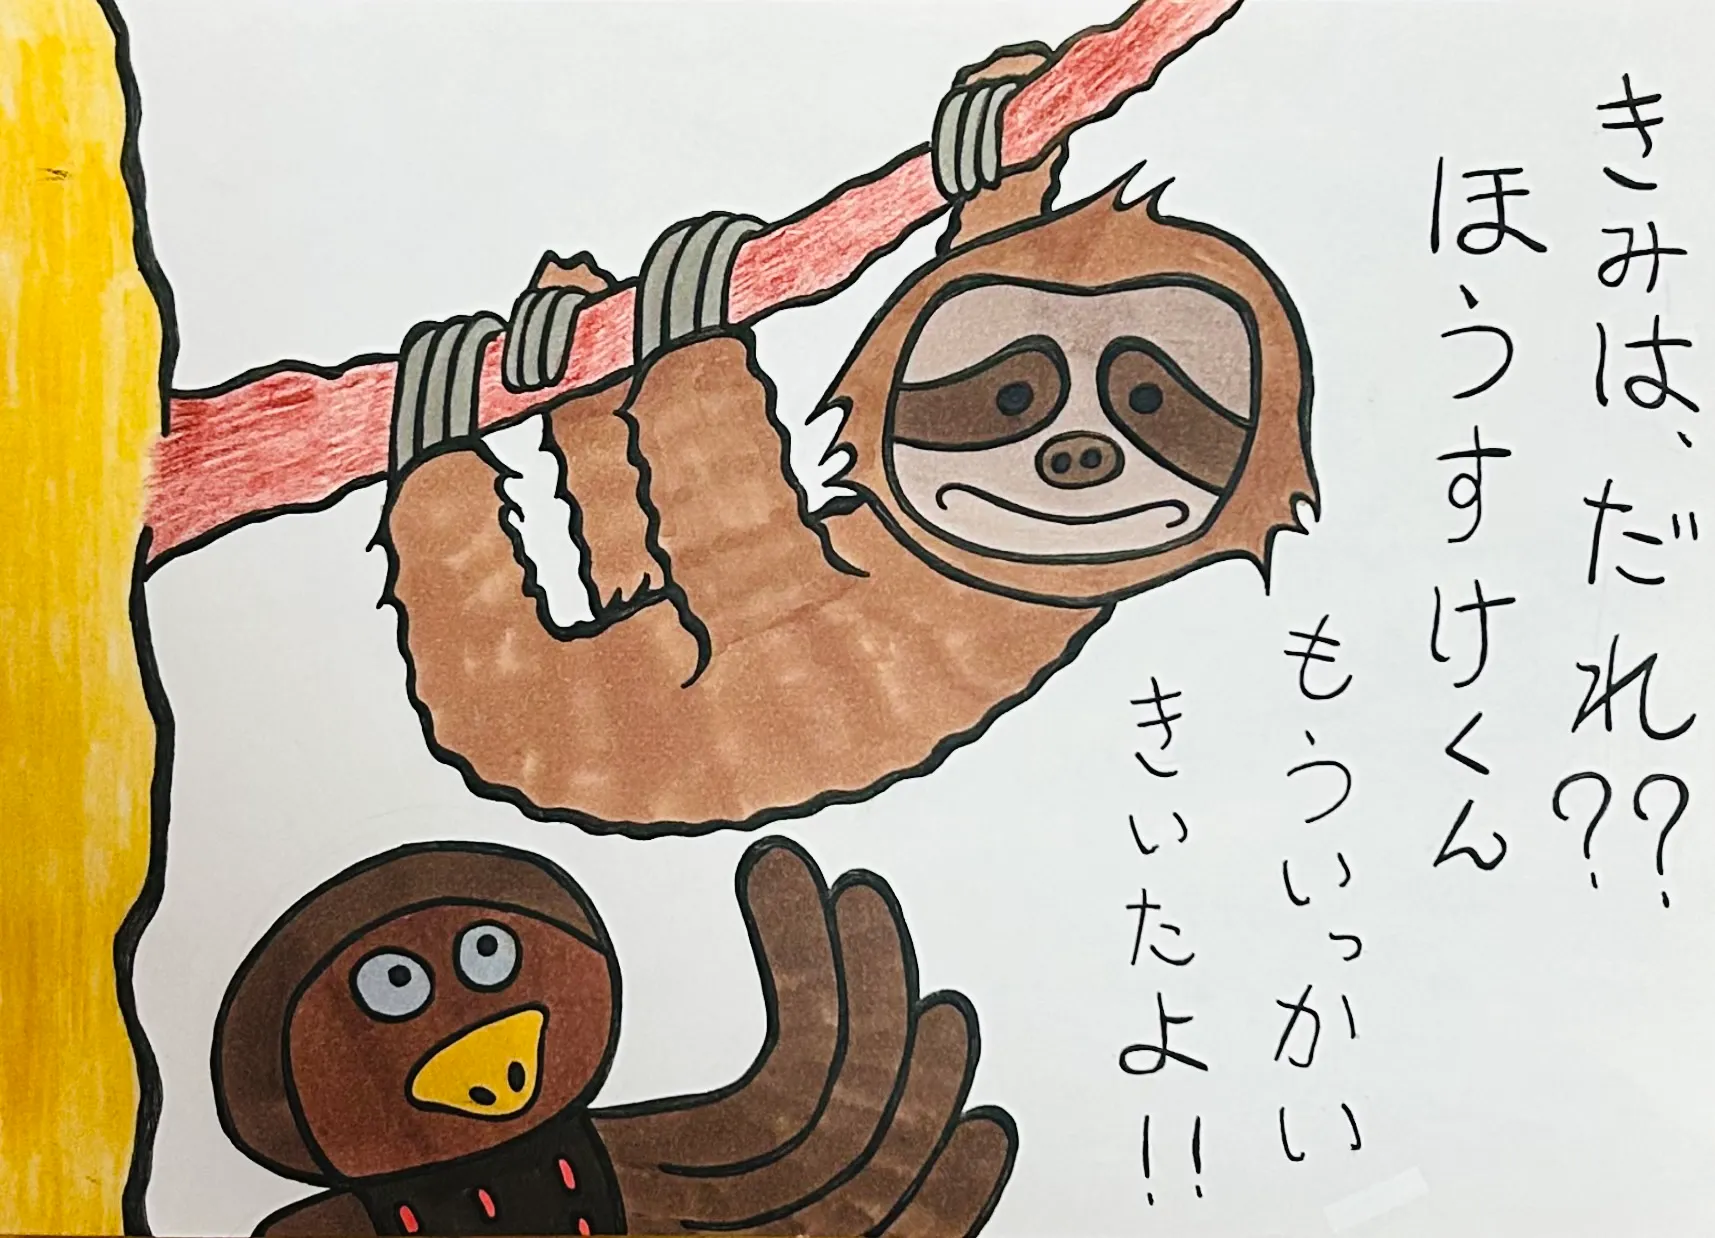 きみは、だれ??
ほうすけくん
もういっかい
きいたよ!!